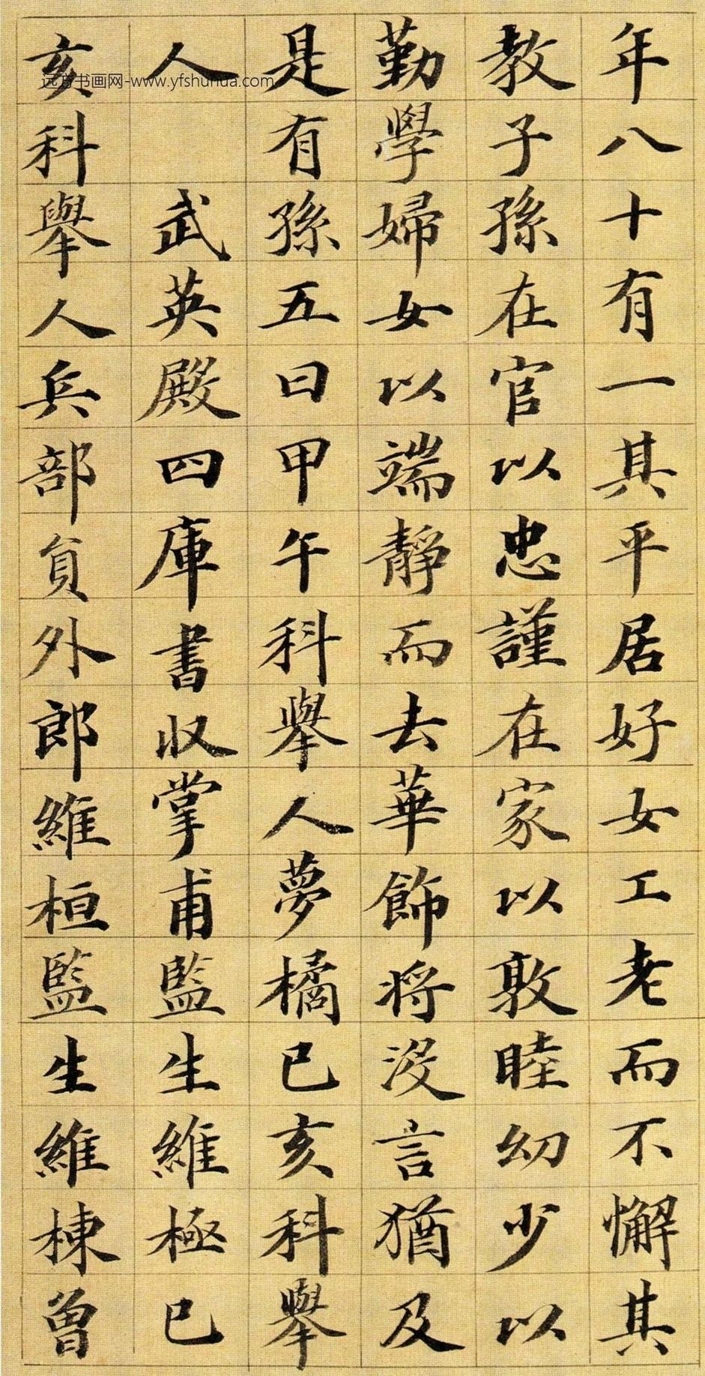 年八十有一其平居好女工老而不懈其
教子孫在官以忠謹在家以敦睦幼少以
勤學婦女以端靜而去華飾將沒言猶及
是有孫五曰甲午科舉人夢橘已亥科舉
人 武英殿四庫書收掌甫監生維極已
亥科舉人兵部負外郎維桓監生維棟曾
远方书画网-www.yfshuhua.com